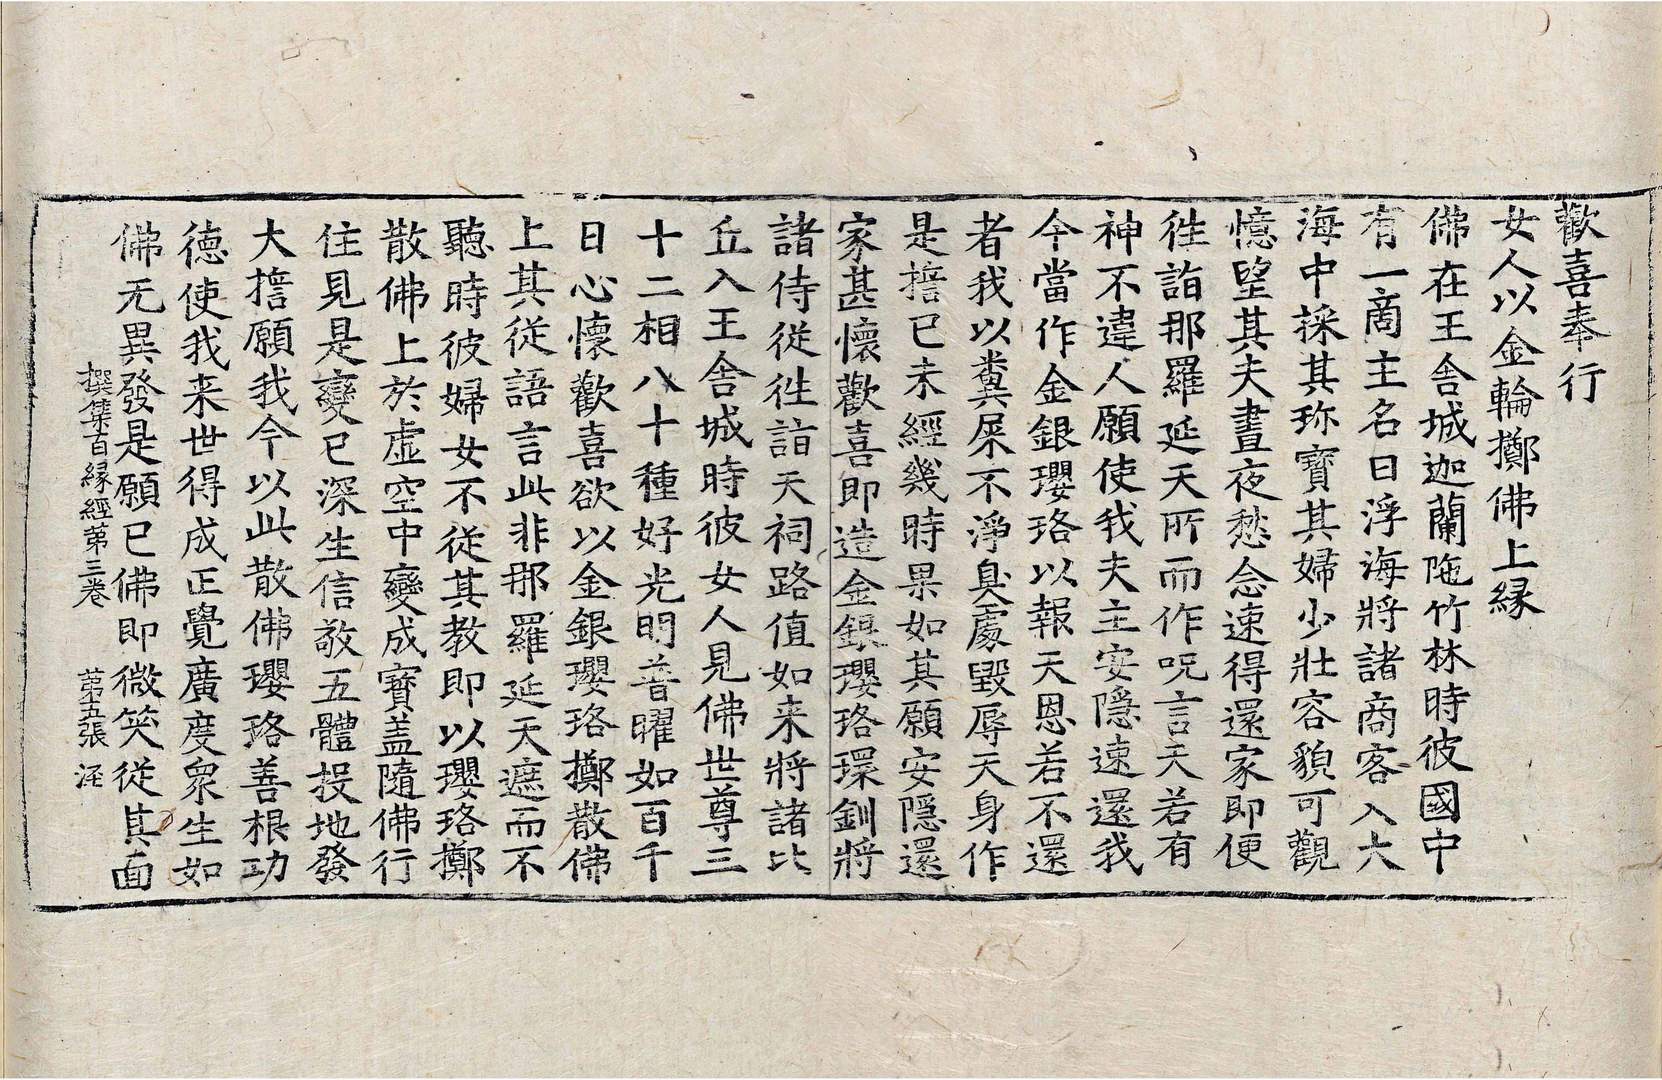 歡喜奉行
女人以金輪擲佛上縁
佛在王舍城迦蘭陁竹林時彼國中
有一商主名曰浮海將諸商客入大
海中採其珎寶其婦少壯容貌可觀
憶望其夫晝夜愁念速得還家即便
徃詣那羅延天所而作呪言天若有
神不違人願使我夫主安隱速還我
今當作金銀瓔珞以報天恩若不還
者我以糞屎不淨臭處毀辱天身作
是擔已未經幾時果如其願安隱還
家甚懷歡喜即造金銀瓔珞環釧將
諸侍從徃詣天祠路值如来將諸比
丘入王舍城時彼女人見佛世尊三
十二相八十種好光明普曜如百千
日心懷歡喜欲以金銀瓔珞擲散佛
上其従語言此非那羅延天遮而不
聽時彼婦女不從其教即以瓔珞擲
散佛上於虚空中變成寶盖隨佛行
住見是變已深生信敬五體投地發
大擔願我今以此散佛瓔珞善根功
德使我来世得成正覺廣度衆生如
佛无異發是願已佛即微笑從其面
撰集百縁經苐三卷 苐五張 淫